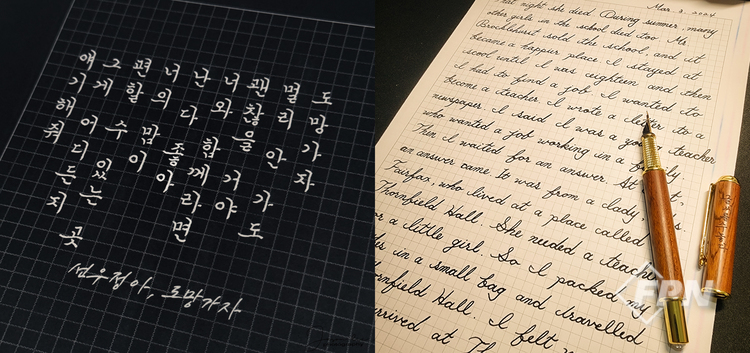 도망가자
멀리 안 가도
괜찮을 거야
너와 함께라면
난 다 좋아
너의 맘이
편할 수 있는 곳
그게 어디든지
얘기해 줘
선우정아, 도망가자
Mar. 3. 2024
night she died During summer, many
other girls in the school died too Mr
Brocklehurst sold the school, and it
became a happier place I stayed at
scool until I was eighteen and then
I had to find a job I wanted to
become a teacher I wrote a letter to a
newspaper. I said I was a young teacher
who wanted a job working in a family
Then I waited for an answer
an answer came It was from a lady,
Fairfax, who lived at a place called
Thornfield Hall. She needed a teacher
for a little girl. So I packed my
in a small bag and travelled
Hall. I felt
arrived at
FPN